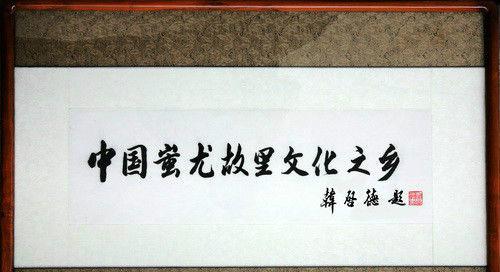 中国蚩尤故里文化之乡
韩启德 题